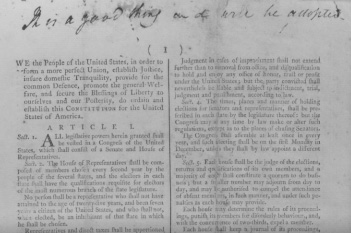 It is a good thing and will be adopted.
( 1 )
WE the People of the United States, in order to
form a more perfect Union, establish Justice,
insure domestic Tranquility, provide for the
common Defence, promote the general Wel-
fare, and secure the Blessings of Liberty to
ourselves and our Posterity, do ordain and
establish this CONSTITUTION for the United
States of America.
ARTICLE I.
Sect. 1. ALL legislative powers herein granted shall
be vested in a Congress of the United
States, which shall consist of a Senate and House of
Representatives.
Sect. 2. The House of Representatives shall be com-
posed of members chosen every second year by the
people of the several states, and the electors in each
state shall have the qualifications requisite for electors
of the most numerous branch of the state legislature.
No person shall be a representative who shall not have
attained to the age of twenty-five years, and been seven
years a citizen of the United States, and who shall not,
when elected, be an inhabitant of that state in which
he shall be chosen.
Representatives and direct taxes shall be apportioned
Judgment in cases of impeachment shall not extend
further than to removal from office, and disqualification
to hold and enjoy any office of honor, trust or profit
under the United States; but the party convicted shall
nevertheless be liable and subject to indictment, trial,
judgment and punishment, according to law.
Sect. 4. The times, places and manner of holding
elections for senators and representatives, shall be pre-
scribed in each state by the legislature thereof: but the
Congress may at any time by law make or alter such
regulations, except as to the places of chusing Senators.
The Congress shall assemble at least once in every
year, and such meeting shall be on the first Monday in
December, unless they shall by law appoint a different
day.
Sect. 5. Each house shall be the judge of the elections,
returns and qualifications of its own members, and a
majority of each shall constitute a quorum to do busi-
ness; but a smaller number may adjourn from day to
day, and may be authorised to compel the attendance
of absent members, in such manner, and under such pe-
nalties as each house may provide.
Each house may determine the rules of its proceed-
ings, punish its members for disorderly behaviour, and,
with the concurrence of two-thirds, expel a member.